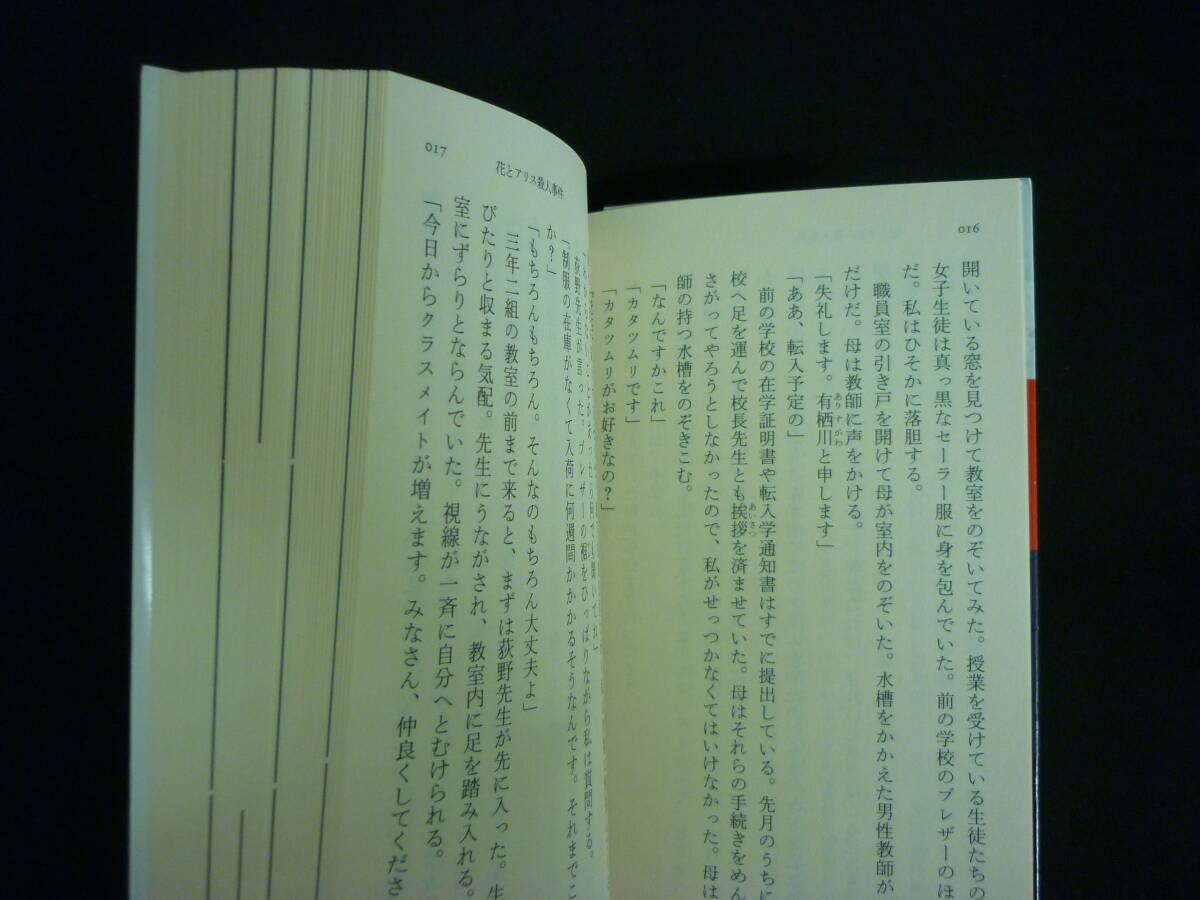 016
開いている窓を見つけて教室をのぞいてみた。授業を受けている生徒たちの
女子生徒は真っ黒なセーラー服に身を包んでいた。前の学校のブレザーのほ
だ。私はひそかに落胆する。
職員室の引き戸を開けて母が室内をのぞいた。水槽をかかえた男性教師が
だけだ。母は教師に声をかける。
「失礼します。有栖川と申します」
ありすがわ
「ああ、転入予定の」
前の学校の在学証明書や転入学通知書はすでに提出している。先月のうちに
校へ足を運んで校長先生とも挨拶を済ませていた。母はそれらの手続きをめん
あいさつ
さがってやろうとしなかったので、私がせっつかなくてはいけなかった。母は
師の持つ水槽をのぞきこむ。
「なんですかこれ」
「カタツムリです」
「カタツムリがお好きなの？」
017
花とアリス殺人事件
荻野先生が言った。ブレザーの裾をひっぱりながら私は質問する。
「制服の在庫がなくて入荷に何週間かかかるそうなんです。それまでこ
か？」
「もちろんもちろん。そんなのもちろん大丈夫よ」
三年二組の教室の前まで来ると、まずは荻野先生が先に入った。生
ぴたりと収まる気配。先生にうながされ、教室内に足を踏み入れる。
室にずらりとならんでいた。視線が一斉に自分へとむけられる。
「今日からクラスメイトが増えます。みなさん、仲良くしてくださ